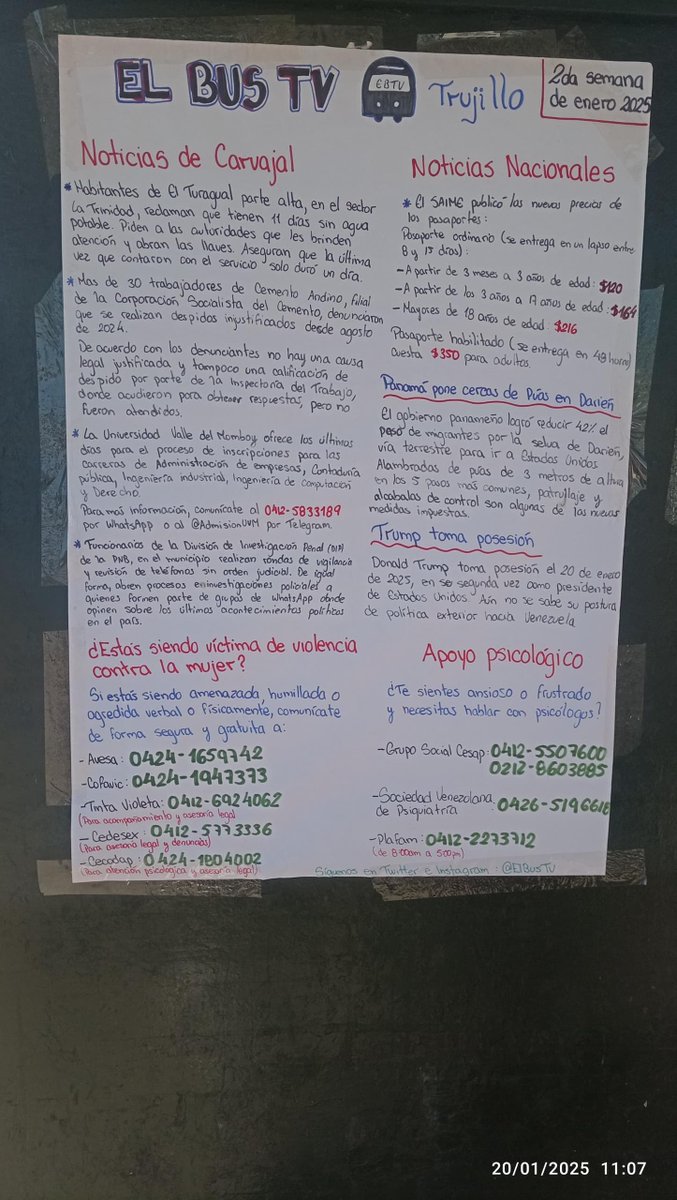 EL BUS TV
EBTV
Trujillo
2da semana
de enero 2025
Noticias de Carvajal
* Habitantes de El Turagual parte alta, en el sector
La Trinidad, reclaman que tienen 11 días sin agua
potable. Piden a las autoridades que les brinden
atención y abran las llaves. Aseguran que la última
vez que contaron con el servicio solo duró un día.
* Mas de 30 trabajadores de Cemento Andino, filial
de la Corporación Socialista del Cemento, denunciaron
que se realizan despidos injustificados desde agosto
de 2024.
De acuerdo con los denunciantes no hay una causa
legal justificada y tampoco una calificación de
despido por parte de la Inspectoría del Trabajo,
donde acudieron para obtener respuestas, pero no
fueron atendidos.
* La Universidad Valle del Momboy ofrece los últimos
días para el proceso de inscripciones para las
carreras de Administración de empresas, Contaduría
pública, Ingeniería industrial, Ingeniería de computación
y Derecho.
Para mas información, comunícate al 0412-5833189
por WhatsApp o al @AdmisionUVM por Telegram.
* Funcionarios de la División de Investigación Penal (DIP)
de la PNB, en el municipio realizan rondas de vigilancia
y revisión de teléfonos sin orden judicial. De igual
forma, abren procesos en investigaciones policiales a
quienes formen parte de grupos de WhatsApp donde
opinen sobre los últimos acontecimientos políticos
en el país.
¿Estás siendo víctima de violencia
contra la mujer?
Si estás siendo amenazada, humillada o
agredida verbal o físicamente, comunícate
de forma segura y gratuita a:
- Avesa: 0424-1659742
- Cofavic: 0424-1947373
- Tinta Violeta: 0412-6924062
(Para acompañamiento y asesoría legal
- Cedesex: 0412-5773336
(Para asesoría legal y denuncias)
- Cecodap: 0424-1804002
(Para atención psicológica y asesoría legal)
Noticias Nacionales
* El SAIME publicó los nuevos precios de
los pasaportes:
Pasaporte ordinario (se entrega en un lapso entre
8 y 15 días):
- A partir de 3 meses a 3 años de edad: $120
- A partir de los 3 años a 17 años de edad: $164
- Mayores de 18 años de edad: $216
Pasaporte habilitado (se entrega en 48 horas)
cuesta $350 para adultos.
Panamá pone cercas de Púas en Darién
El gobierno panameño logró reducir 42% el
peso de migrantes por la selva de Darién,
vía terrestre para ir a Estados Unidos.
Alambradas de púas de 3 metros de altura
en los 5 pasos mas comunes, patrullaje y
alcabalas de control son algunas de las nuevas
medidas impuestas.
Trump toma posesión
Donald Trump toma posesión el 20 de enero
de 2025, en se segunda vez como presidente
de Estados Unidos. Aún no se sabe su postura
de política exterior hacia Venezuela
Apoyo psicológico
¿Te sientes ansioso o frustrado
y necesitas hablar con psicólogos?
- Grupo Social Cesap: 0412-5507600
0212-8603885
- Sociedad Venezolana
de Psiquiatría: 0426-5196618
- Plafam: 0412-2273712
(de 8:00am a 5:00pm)
Síguenos en Twitter e Instagram: @ElBusTV
20/01/2025 11:07